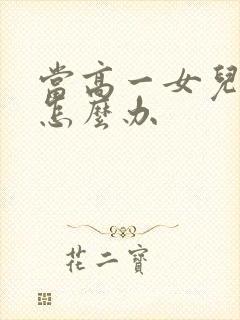 當高一女兒
怎麼办
花二寶